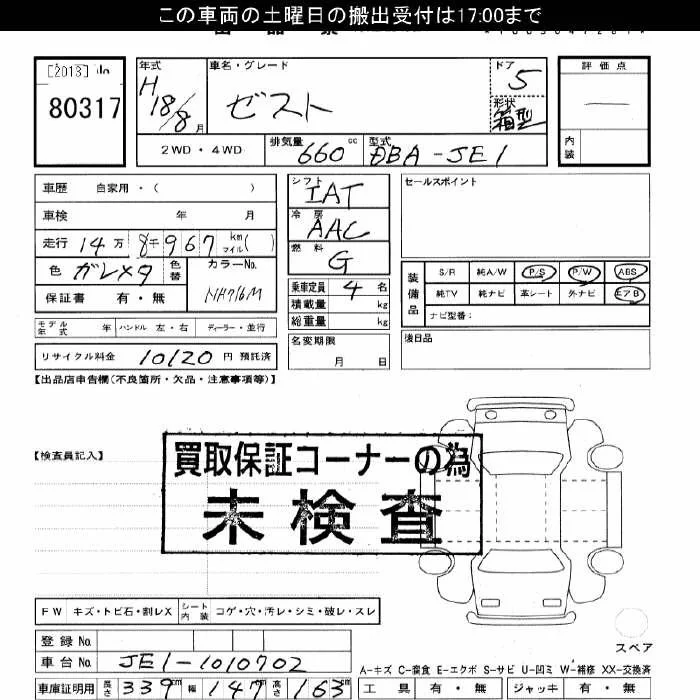 この車両の土曜日の搬出受付は17:00まで
[2013] No
80317
年式 H18/8月
車名・グレード ゼスト
ドア 5
形状 箱型
評価点 —
内装
2WD・4WD
排気量 660cc
型式 DBA-JE1
車歴 自家用・( )
車検 年 月
走行 14万8千967 km マイル( )
色 ガンメタ 色替 カラーNo. NH716M
保証書 有・無
シフト IAT
冷房 AAC
燃料 G
乗車定員 4名
積載量 kg
総重量 kg
名変期限 月 日
セールスポイント
装備品 S/R 純A/W P/S P/W ABS
純TV 純ナビ 革シート 外ナビ エアB
ナビ型番:
後日品
モデル年式 年 ハンドル 左・右 ディーラー・並行
リサイクル料金 10120円 預託済
【出品店申告欄(不良箇所・欠品・注意事項等)】
【検査員記入】
買取保証コーナーの為
未検査
FW キズ・トビ石・割レX シート内装 コゲ・穴・汚レ・シミ・破レ・スレ
登録No.
車台No. JE1-1010702
スペア
A-キズ C-腐食 E-エクボ S-サビ U-凹ミ W-補修 XX-交換済
車庫証明用 長さ 339cm 幅 147cm 高さ 163cm
工具 有・無 ジャッキ 有・無